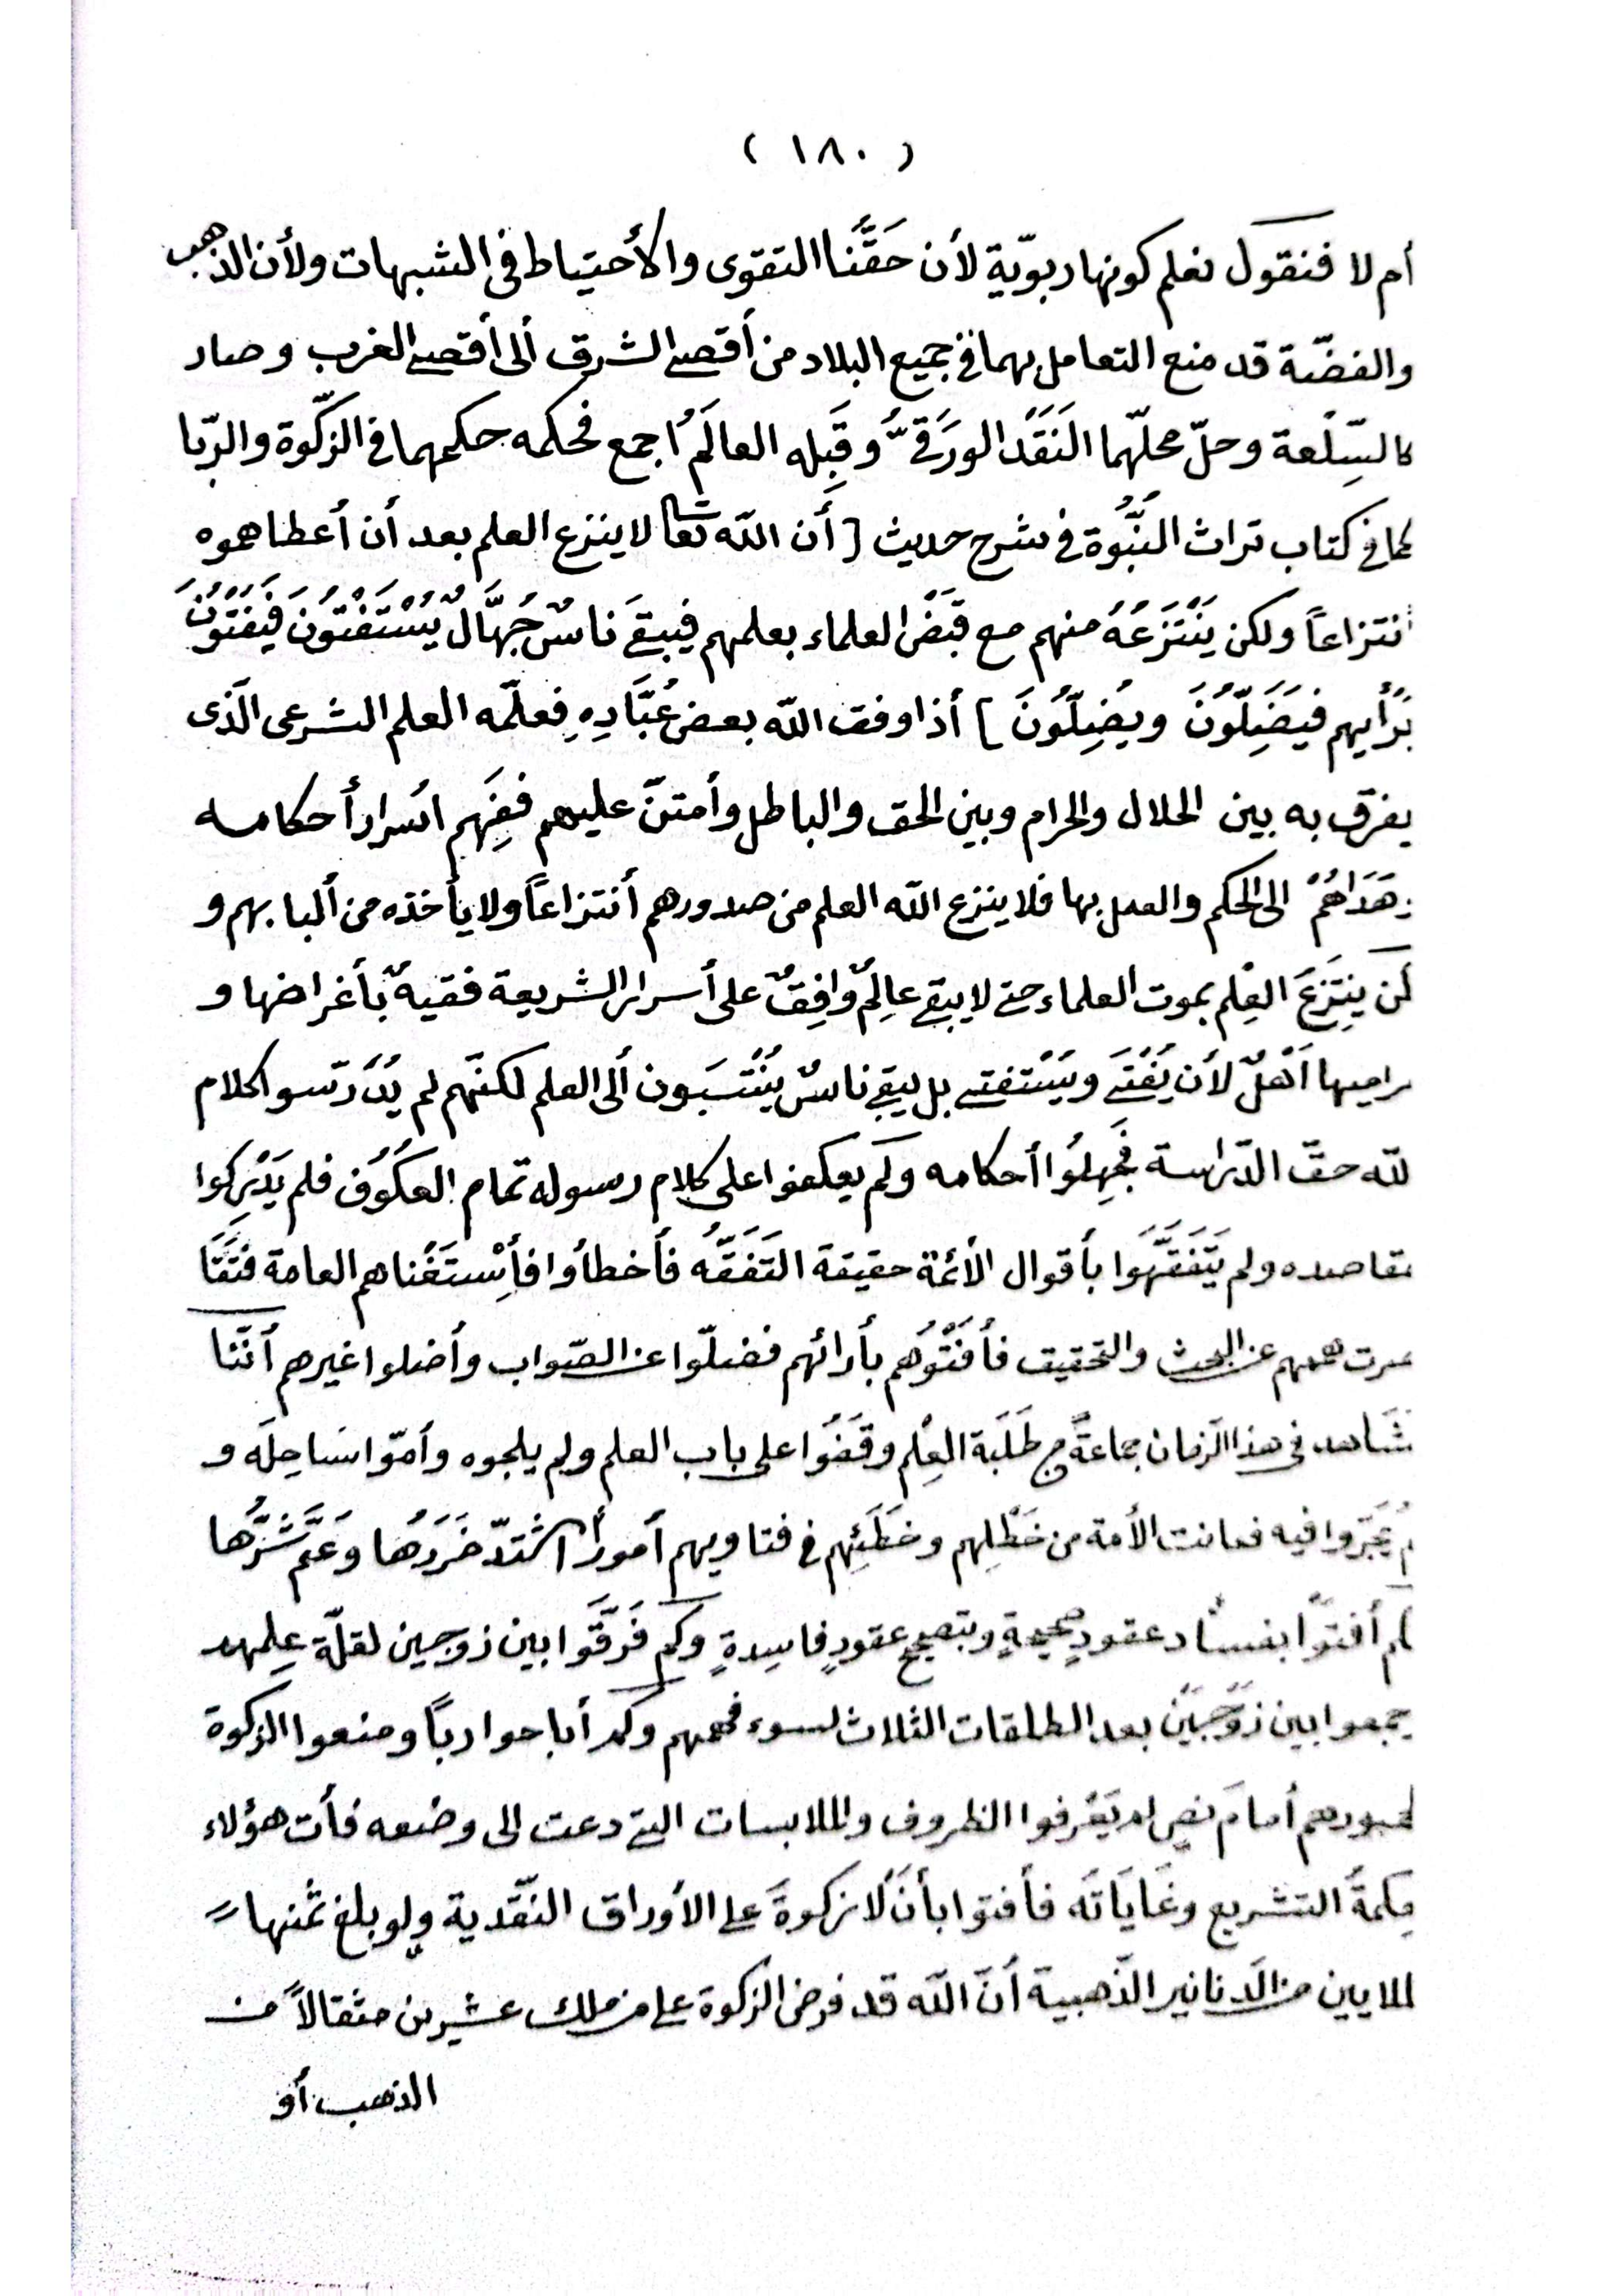 ( ١٨٠ )
أم لا فنقول نعلم كونها ربويّة لأن حَقَّنَا التقوى والأحتياط فى الشبهات ولأن الذهب
والفضّة قد منع التعامل بهما فى جميع البلاد من أقصى الشرق ألى أقصى الغرب وصار
كالسِّلْعة وحلّ محلّهما النَقَدْ الورَقىُّ وقَبِله العالَمُ اجمع فحكمه حكمهما فى الزكّوة والرّبا
كما فى كتاب تراث النُّبُوة فى شرح حديث [ أَن اللّه تعا لا ينزع العلم بعد أن أعطاهموه
نتزاعاً ولكن يَنْتَزَعُهُ منهم مع قَبَضْ العلماء بعلمهم فيبقَى ناسٌ جُهَّالٌ يُسْتَفْتُونَ فَيُفْتُونَ
بَرْأيهم فيَضَِلّوُنَ ويُضِلّوُنَ ] أذا وفق اللّه بعض عُبَّادِهِ فعلّمه العلم الشرعى الّذى
يفرق به بين الحلال والحرام وبين الحق والباطل وأمتنّ عليهم ففَهِم اسْرار أحكامه
وَهَدَاهُمْ الى الحكم والعمل بها فلا ينزع اللّه العلم من صدورهم أنتزاعاً ولا يأخذه من ألبابهم و
لكن يَنِتَزعَ العِلْم بموت العلماء حتى لا يبقى عالِمٌ وافِقٌ على أسرار الشريعة فقيهٌ بأغراضها و
مراميها اَهْلٌ لأن يُفْتَى ويَسْتفتى بل يبقى ناسٌ يُنْتَسَبَون ألى العلم لكنّهم لم يُدَرّسو اكلام
للّه حقّ الدّراسة فَجَهِلُوا أحكامه ولَم يعكفوا على كلام رسوله تمام العكَوُف فلم يَدْرِكوا
مقاصده ولم يَتَفَقَّهَوا بأقوال الأئمّة حقيقة التَفَقُّه فأخطأوا فأِسْتَغْناهم العامة فتَقَا
صرت هممهم عن البحث والتحقيق فأفْتُوَهُم بأرائهم فضلّوا عن الصّواب وأضلوا غيرهم أنّنا
نشَاهد فى هذا الزمان جماعةً من طَلَبَة العِلْم وقَفَوُا على باب العلم ولم يلجوه وأمّوا سَاحِلَه و
لم يتجَرّوا فيه فعانت الأمة من خَطْلِهم وخطَئِهم فى فتاويهم أموراً اشْتدّ ضَرَرُها وعَمَّ شَرُّها
كم أفتوْا بفساد عقودٍ صحيحةٍ وبتصحيح عقودٍ فاسِدةٍ وكم فَرَقَّوا بين زوجين لقلّة عِلمهم
يجمعوا بين زوَجَيْن بعد الطلقات الثلاث لسوء فهمهم وكم أباحوا رباً ومنعوا الزكوة
لجمودهم أمامَ نص لم يَعْرفوا الظروف والملابسات التى دعت الى وضعه فأت هؤلاء
حِكمةُ التشريع وغَايَاتَه فأفتوا بأنَ لاْ زكوةَ على الأوراق النّقدية ولو بلغ ثمنها
الملايين من الدنانير الذّهبية أنّ اللّه قد فرض الزكوة على من ملك عشرين مثقالاً من
الذهب أو